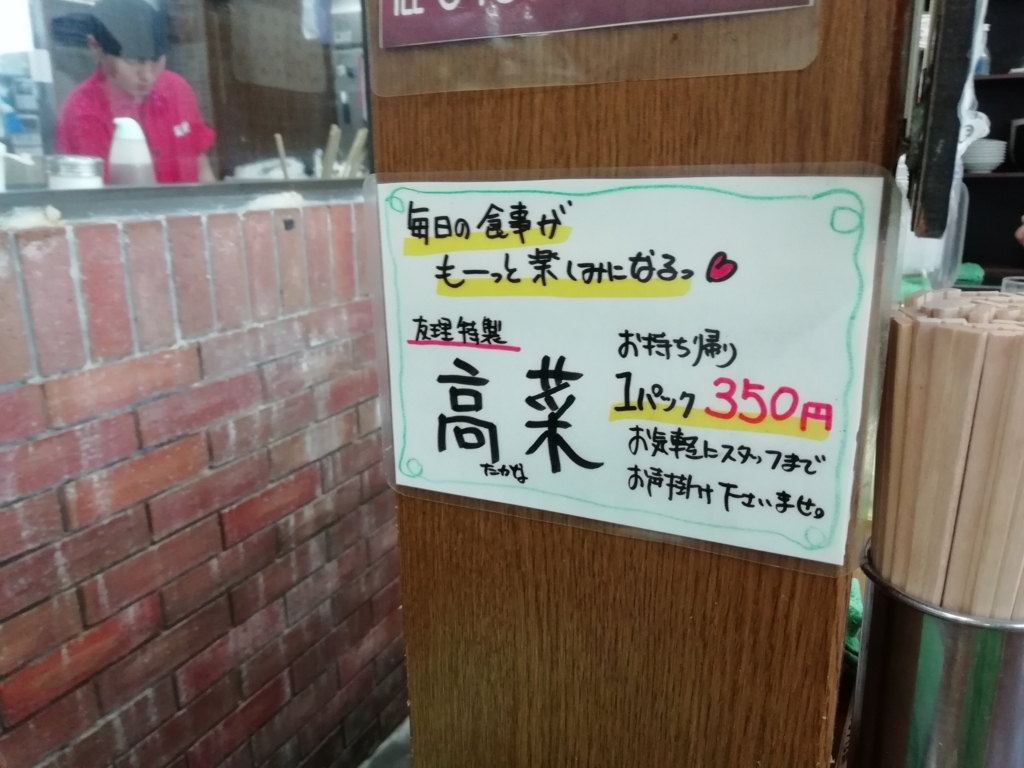 毎日の食事が
もーっと楽しみになるっ
友理特製
高菜
たかな
お持ち帰り
1パック 350円
お気軽にスタッフまで
お声掛け下さいませ。
TEL